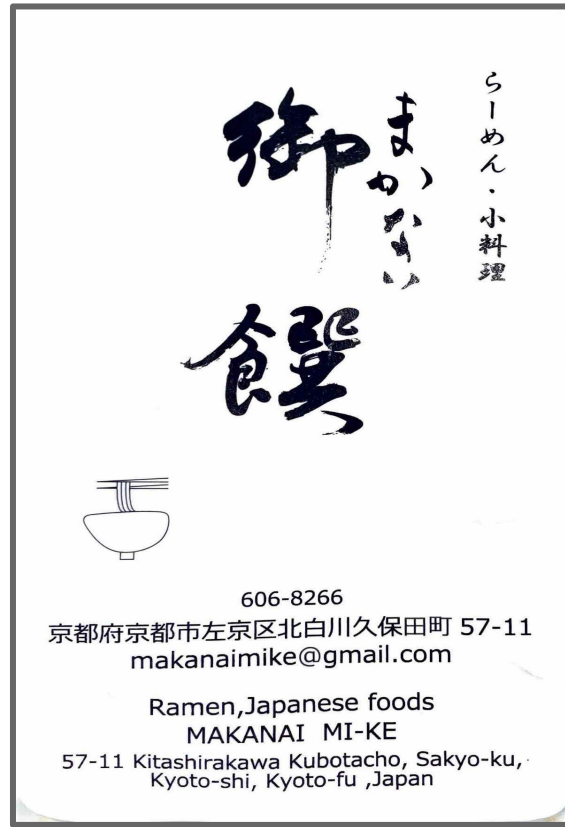 らーめん・小料理
まかない
御饌
606-8266
京都府京都市左京区北白川久保田町 57-11
makanaimike@gmail.com
Ramen,Japanese foods
MAKANAI MI-KE
57-11 Kitashirakawa Kubotacho, Sakyo-ku,
Kyoto-shi, Kyoto-fu ,Japan